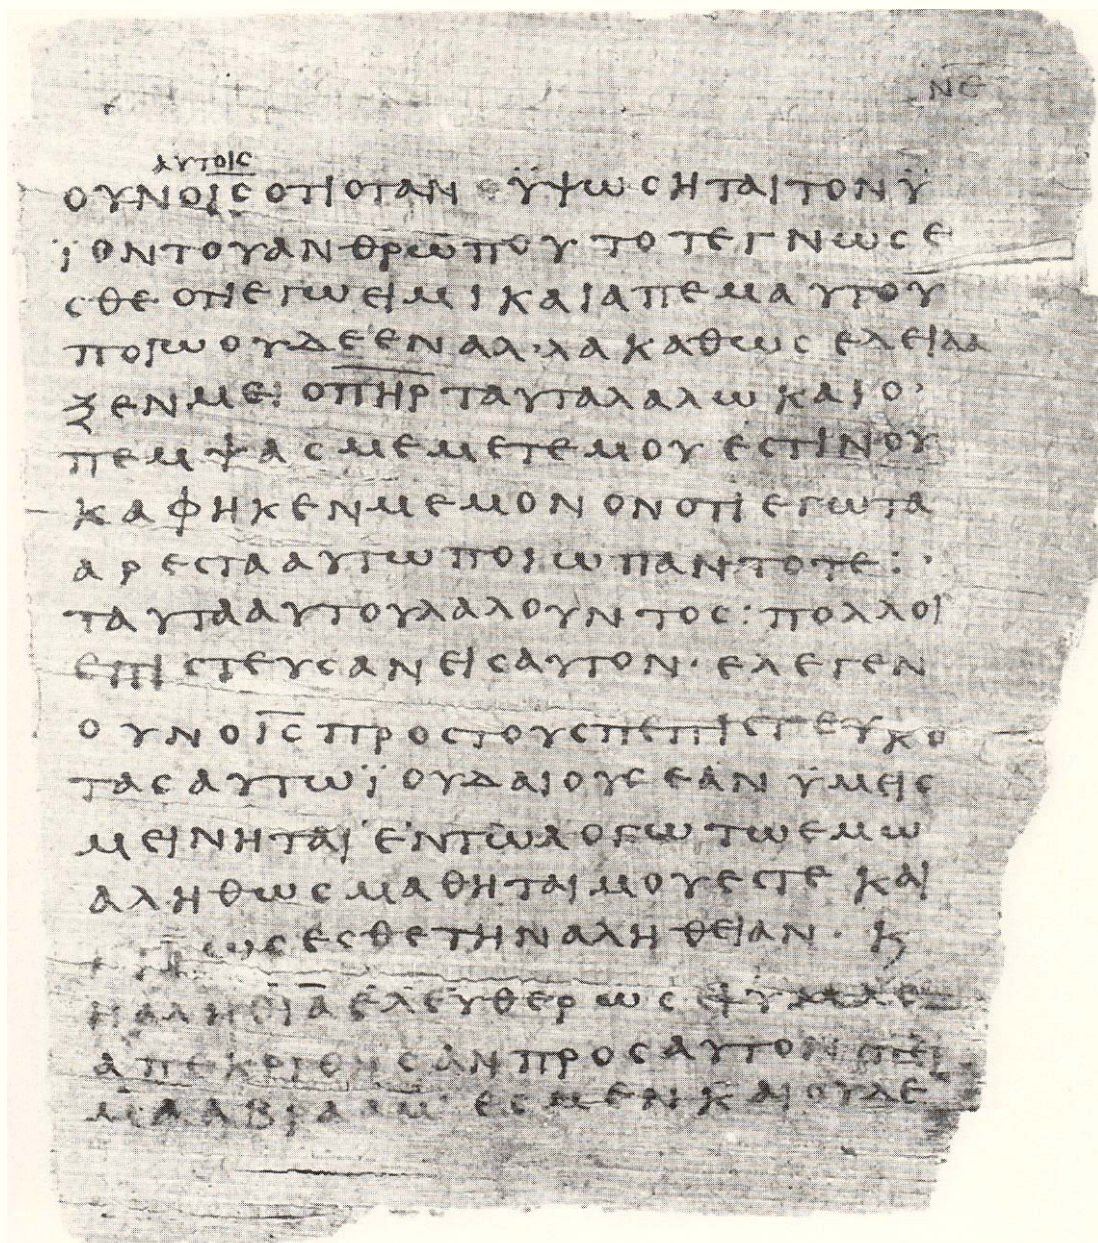 ΝΕ
ΑΥΤΟΙϹ
ΟΥΝΟΙ̅Ϲ̅ΟΤΙΟΤΑΝ ΫΨΩϹΗΤΑΙΤΟΝΫ
ΪΟΝΤΟΥΑΝΘΡΩΠΟΥ ΤΟΤΕΓΝΩϹΕ
ϹΘΕ ΟΤΙΕΓΩΕΙΜΙ ΚΑΙΑΠΕΜΑΥΤΟΥ
ΠΟΙΩΟΥΔΕΕΝΑΛ·ΛΑΚΑΘΩϹ ΕΔΕΙΔΑ
ΞΕΝΜΕ Ο Π̅Η̅Ρ̅ ΤΑΥΤΑΛΑΛΩ ΚΑΙΟ·
ΠΕΜΨΑϹΜΕΜΕΤΕΜΟΥ ΕϹΤΙΝΟΥ
ΚΑΦΗΚΕΝΜΕΜΟΝΟΝΟΤΙΕΓΩΤΑ
ΑΡΕϹΤΑΑΥΤΩΠΟΙΩΠΑΝΤΟΤΕ:·
ΤΑΥΤΑΑΥΤΟΥΛΑΛΟΥΝΤΟϹ: ΠΟΛΛΟΙ
ΕΠΙϹΤΕΥϹΑΝΕΙϹΑΥΤΟΝ· ΕΛΕΓΕΝ
ΟΥΝΟΙ̅Ϲ̅ΠΡΟϹΤΟΥϹΠΕΠΙϹΤΕΥΚΟ
ΤΑϹΑΥΤΩΪΟΥΔΑΙΟΥϹΕΑΝ ΫΜΕΙϹ
ΜΕΙΝΗΤΑΙ ΕΝΤΩΛΟΓΩ ΤΩΕΜΩ
ΑΛΗΘΩϹΜΑΘΗΤΑΙΜΟΥΕϹΤΕ ΚΑΙ
ΩϹΕϹΘΕΤΗΝΑΛΗΘΕΙΑΝ·
ΗΑΛΗΘΙΑΕΛΕΥΘΕΡΩϹΕΙ
ΑΠΕΚΡΙΘΗϹΑΝΠΡΟϹΑΥΤΟΝϹΠΕΡ
Μ·ΑΑΒΡΑΑΜ· ΕϹΜΕΝΚΑΙΟΥΔΕ